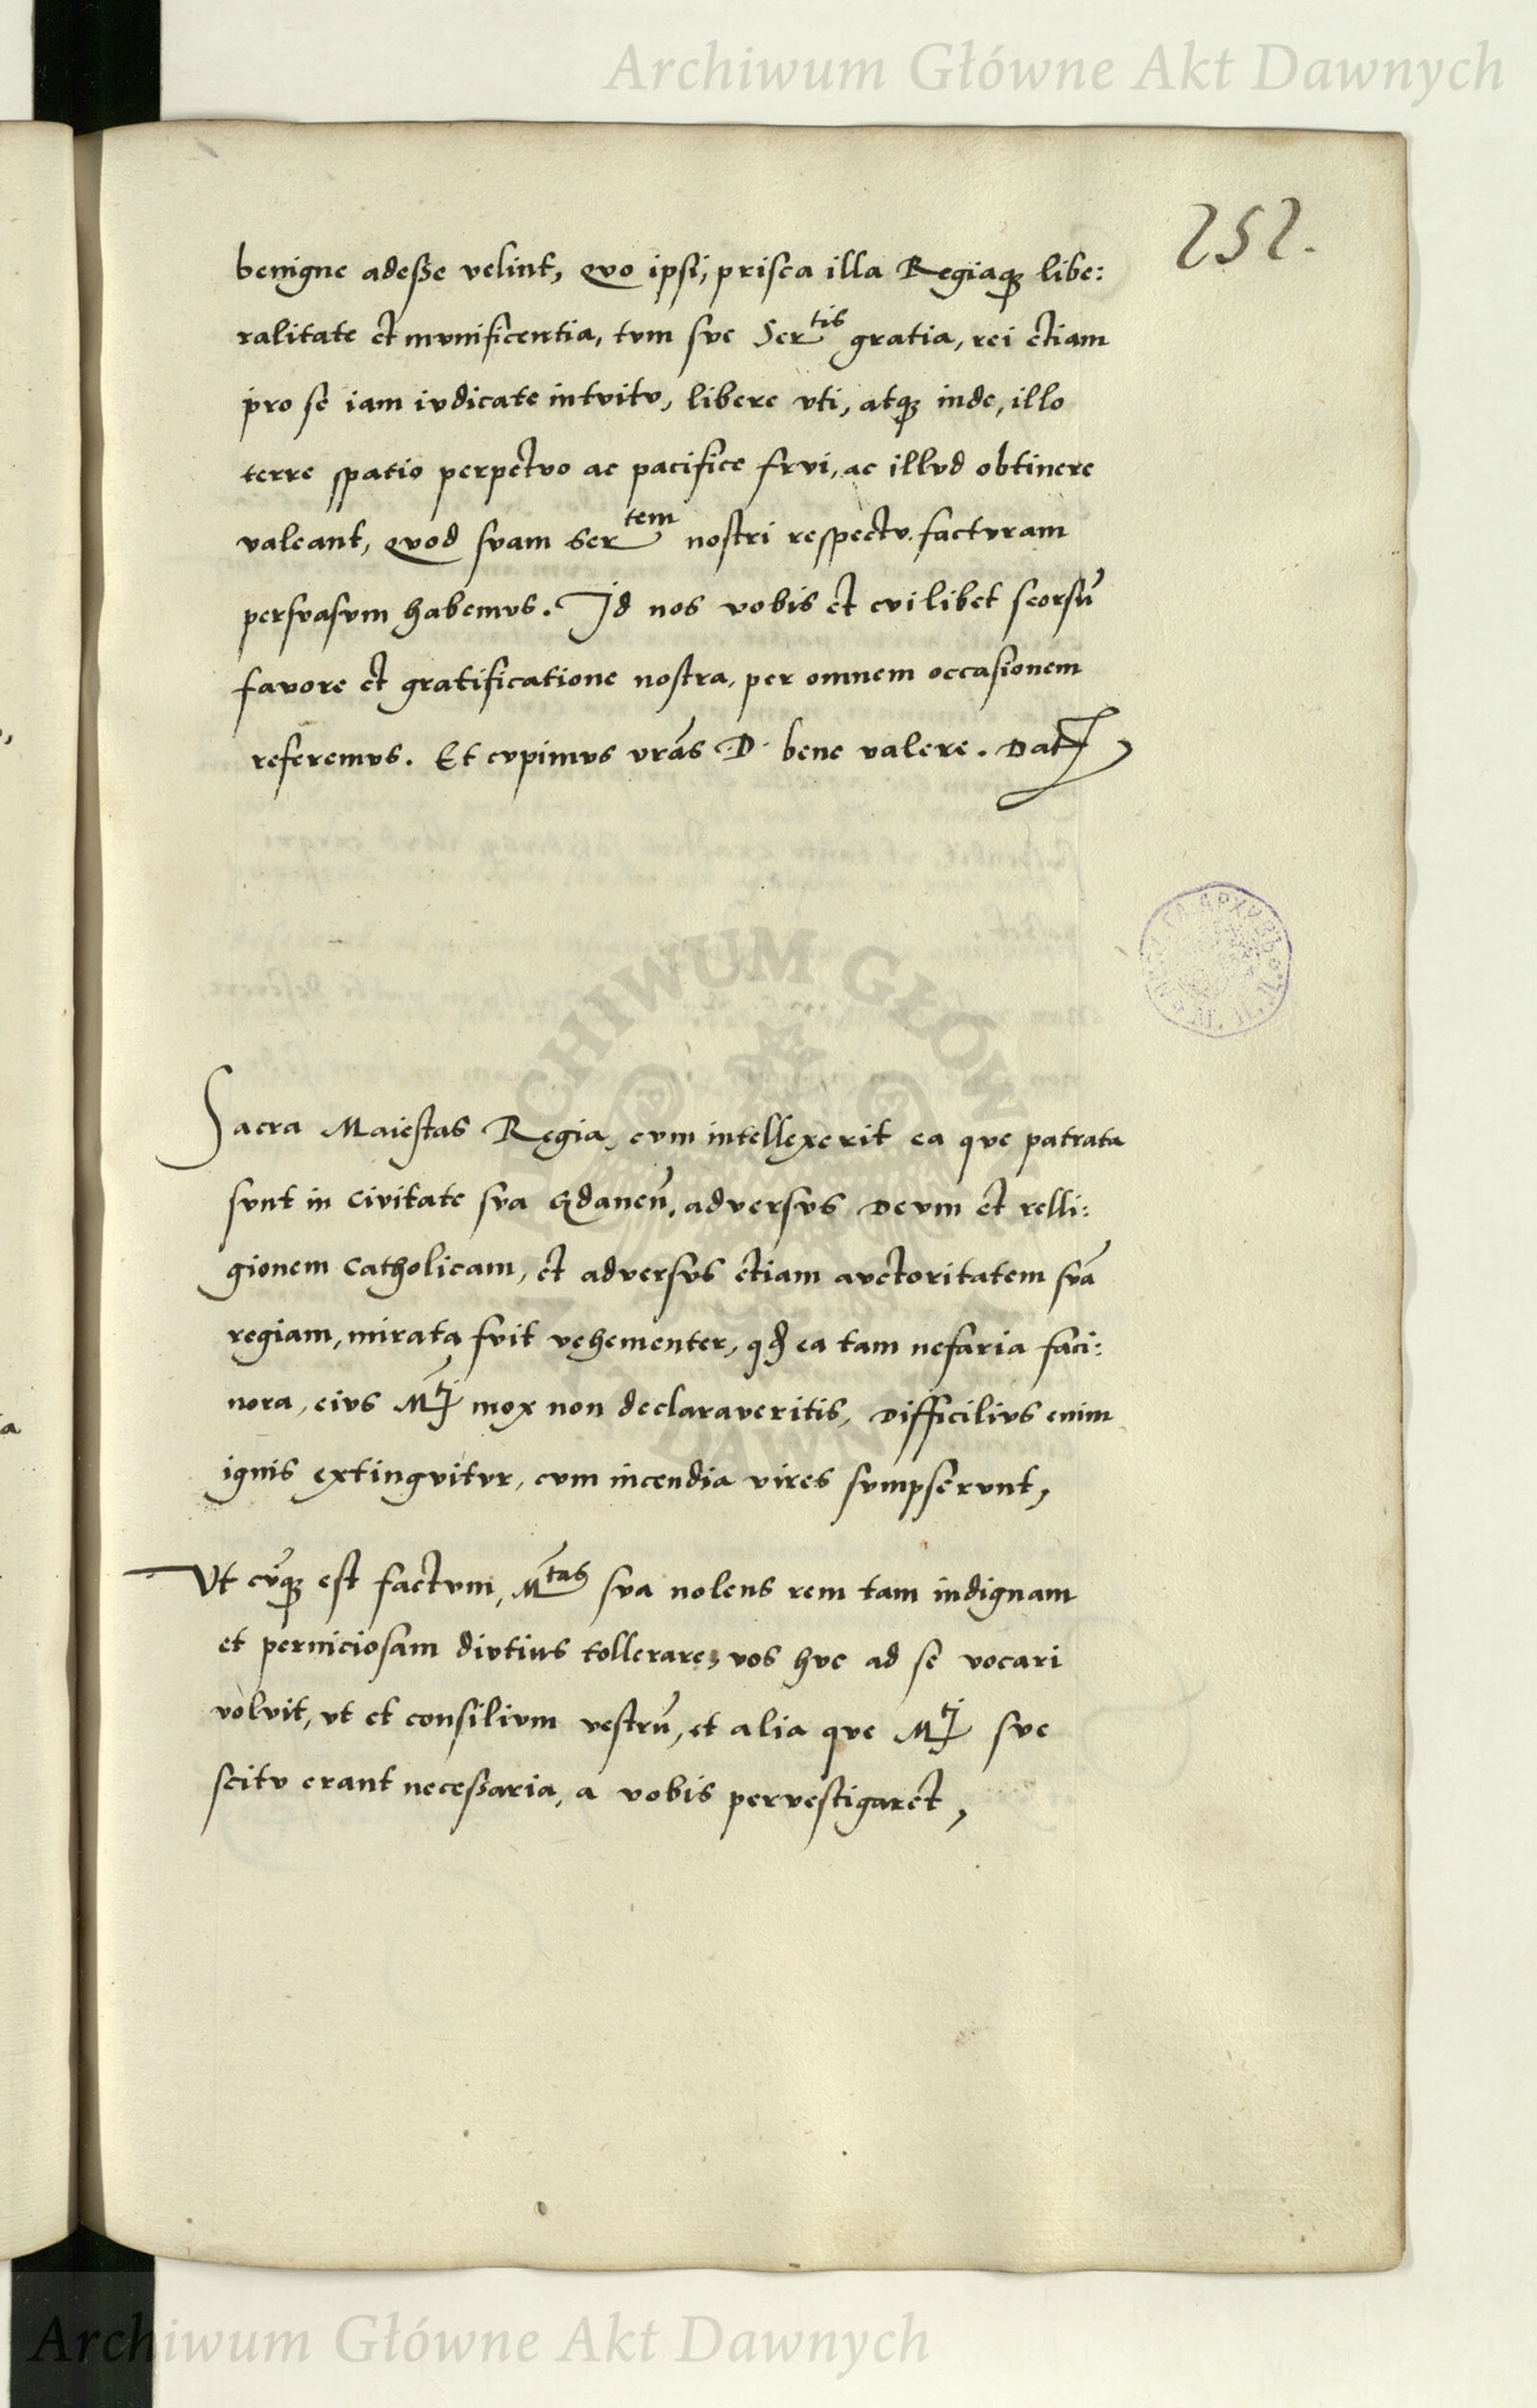 Archiwum Główne Akt Dawnych
252.
benigne adeße velint, Quo ipsi, prisca illa Regiaqȝ libe:
ralitate et munificentia, tum sue Ser^tis gratia, rei etiam
pro se iam iudicate intuitu, libere uti, atqȝ inde, illo
terre spatio perpetuo ac pacifice frui, ac illud obtinere
valeant, Quod suam Ser^tem nostri respectu facturam
persuasum habemus. Id nos vobis et cuilibet seorsū
favore et gratificatione nostra, per omnem occasionem
referemus. Et cupimus vrās D. bene valere. Dat
Sacra Maiestas Regia, cum intellexerit ea que patrata
sunt in Civitate sua Gdaneñ, adversus Deum et relli:
gionem Catholicam, et adversus etiam auctoritatem suā
regiam, mirata fuit vehementer, qd ea tam nefaria faci:
nora, eius M^ti mox non declaraveritis, Difficilius enim
ignis extinguitur, cum incendia vires sumpserunt,
Ut cūqȝ est factum, M^tas sua nolens rem tam indignam
et perniciosam diutius tollerare, vos huc ad se vocari
voluit, ut et consilium vestrū, et alia que M^ti sue
scitu erant neceßaria, a vobis pervestigaret,
ARCHIWUM GŁÓWNE AKT DAWNYCH
Archiwum Główne Akt Dawnych